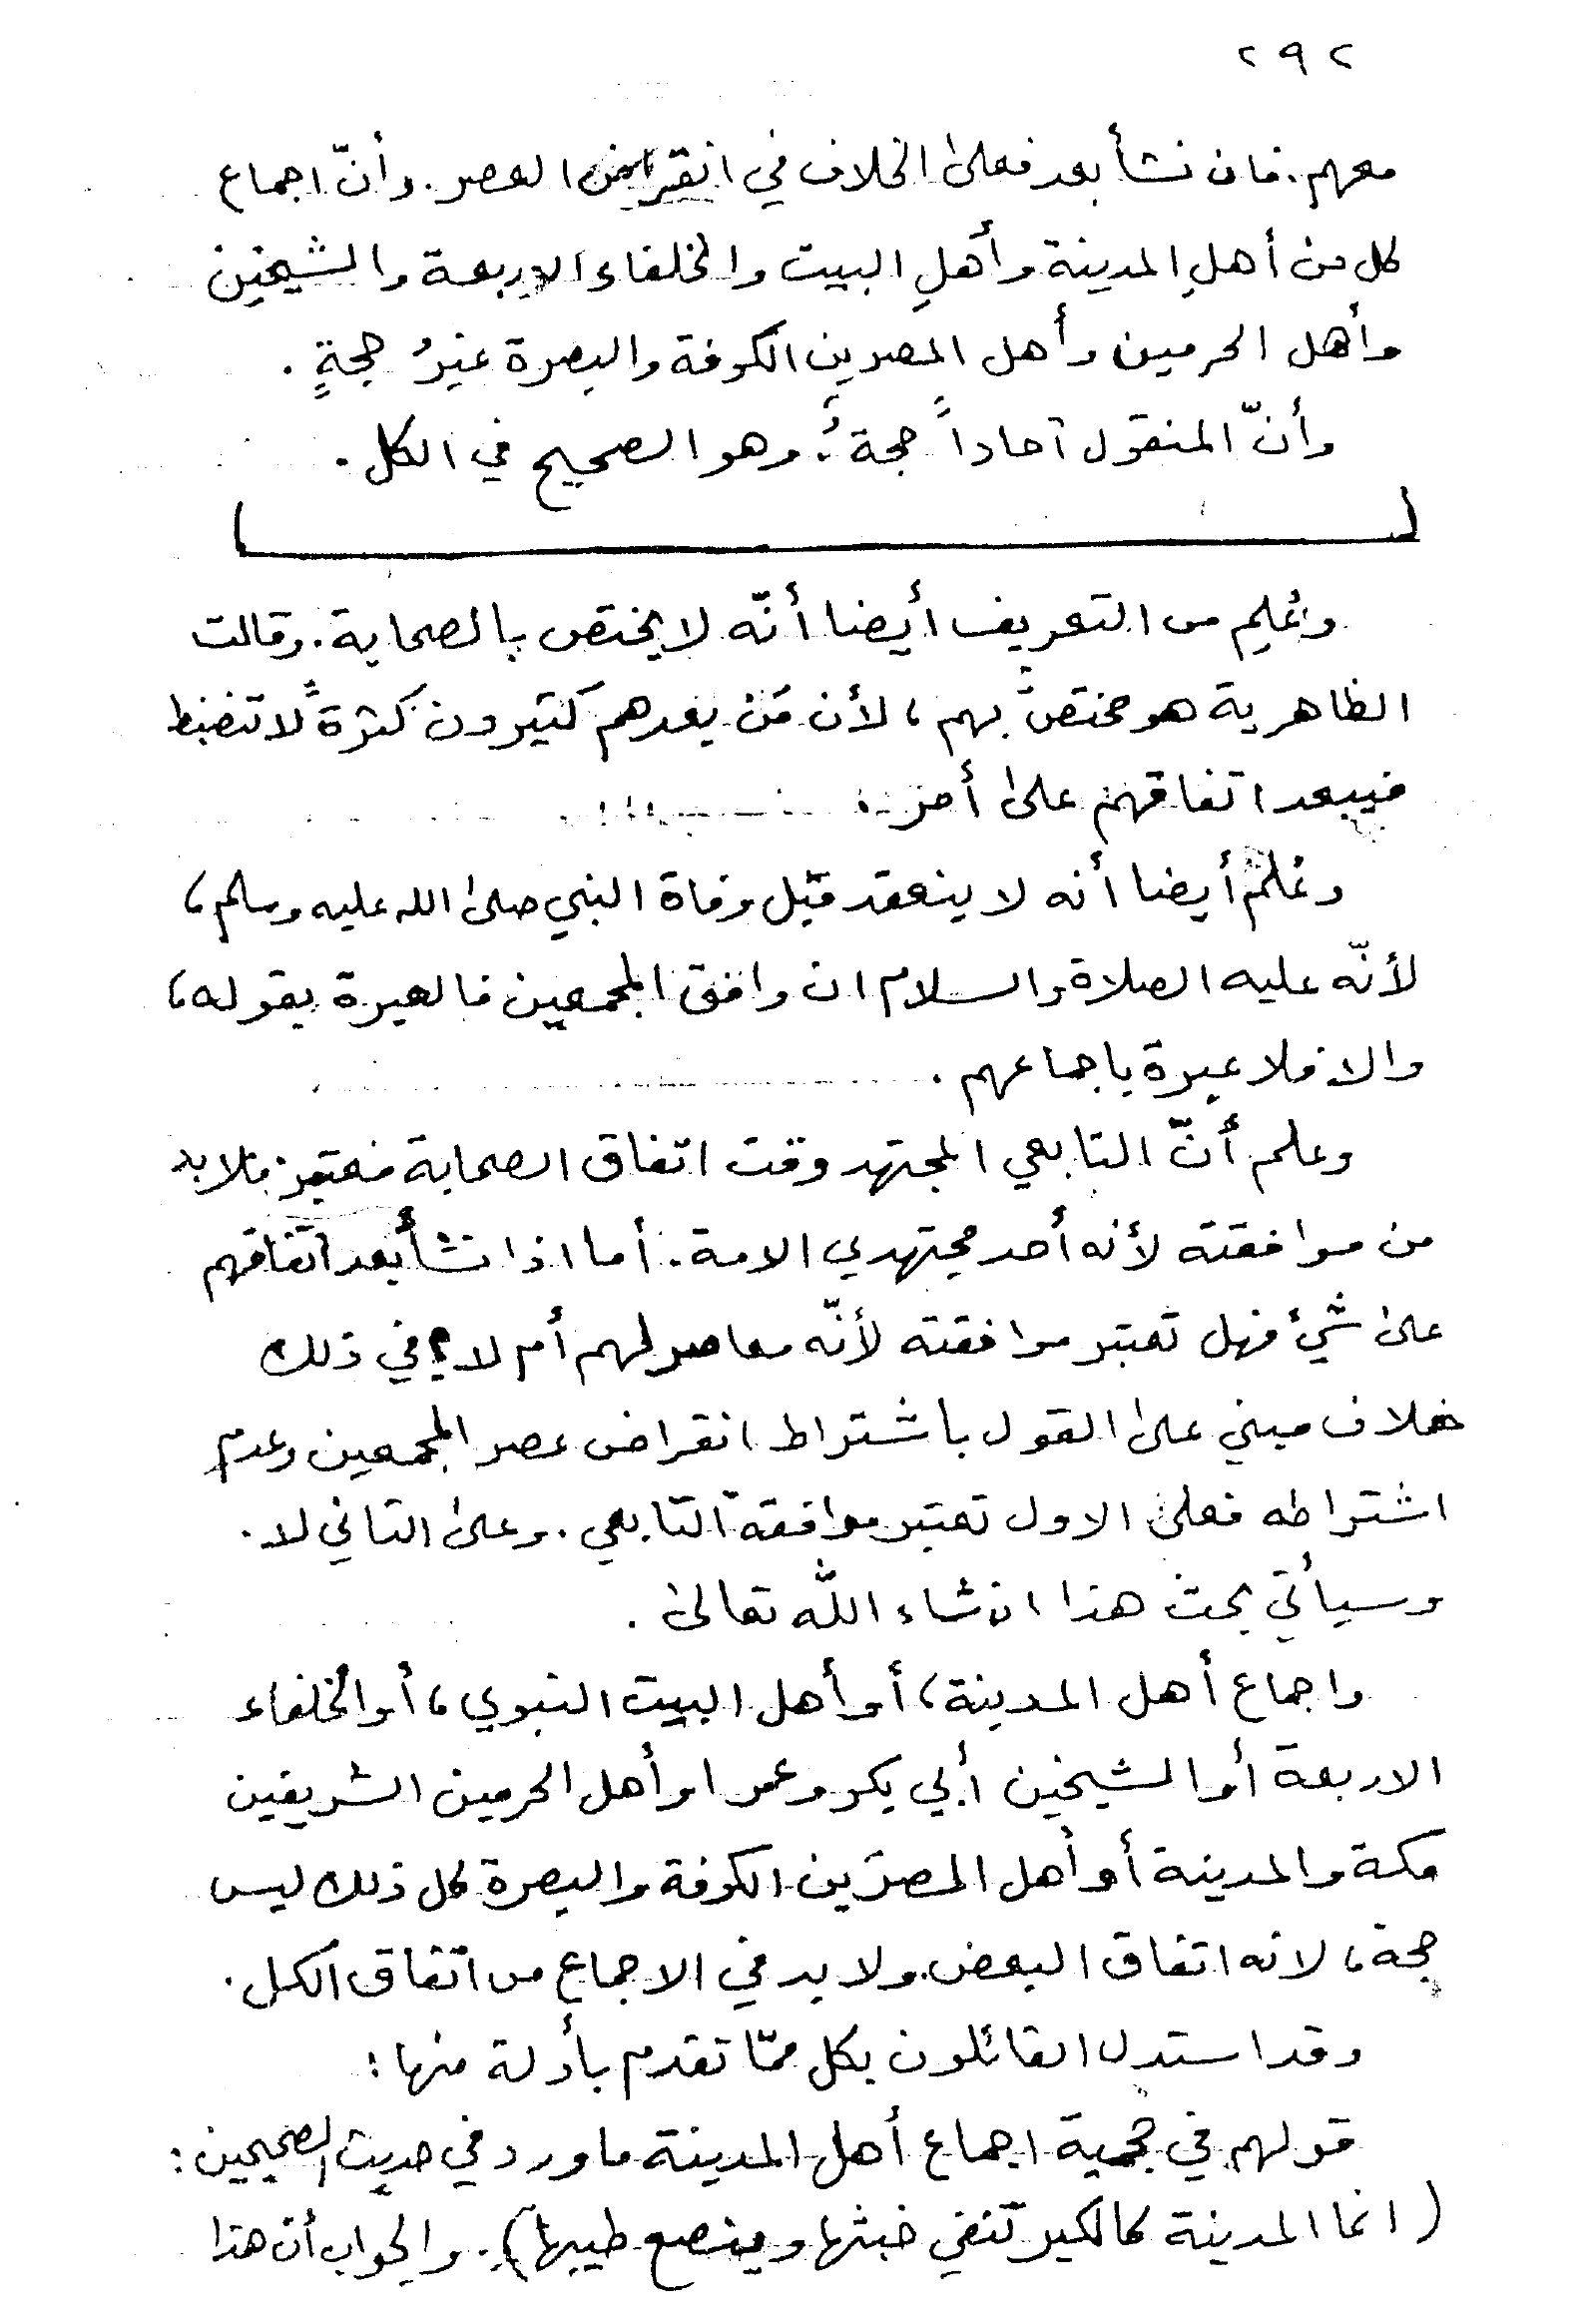 ٢٩٢
معهم. فان نشأ بعد فعلى الخلاف في انقراض العصر. وأنّ اجماع
كل من أهلِ المدينة وأهلِ البيت والخلفاء الاربعة والشيخين
وأهل الحرمين وأهل المصرين الكوفة والبصرة غيرُ حجةٍ.
وأنّ المنقول آحاداً حجةٌ. وهو الصحيح في الكل.
وعُلِم من التعريف أيضا أنّه لا يختص بالصحابة. وقالت
الظاهرية هو مختصّ بهم، لأن مَن بعدهم كثيرون كثرةً لا تنضبط
فيبعد اتفاقهم على أمر.
وعُلم أيضا أنه لا ينعقد قبل وفاة النبي صلى الله عليه وسلم،
لأنّه عليه الصلاة والسلام ان وافق المجمعين فالعبرة بقوله،
والا فلا عبرة باجماعهم.
وعلم أنّ التابعي المجتهد وقت اتفاق الصحابة معتبر فلا بد
من موافقته لأنه أحد مجتهدي الامة. أما اذا نشأ بعد اتفاقهم
على شئ فهل تعتبر موافقته لأنّه معاصر لهم أم لا؟ في ذلك
خلاف مبني على القول باشتراط انقراض عصر المجمعين وعدم
اشتراطه فعلى الاول تعتبر موافقة التابعي. وعلى الثاني لا.
وسيأتي بحث هذا ان شاء اللّٰه تعالى.
واجماع أهل المدينة، أو أهل البيت النبوي، أو الخلفاء
الاربعة أو الشيخين أبي بكر وعمر او أهل الحرمين الشريفين
مكة والمدينة أو أهل المصرَين الكوفة والبصرة كل ذلك ليس
حجة، لانه اتفاق البعض. ولا بد في الاجماع من اتفاق الكل.
وقد استدل القائلون بكل ممّا تقدم بأدلة منها:
قولهم في حجية اجماع أهل المدينة ما ورد في حديث الصحيحين:
(انما المدينة كالكير تنفي خبثها وينصع طيبها). والجواب أن هذا